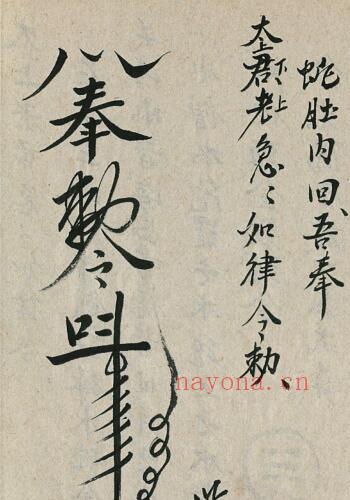 蛇肚内回、吾奉
太上老君急〻如律令勅、
奉勅之
nayona.cn